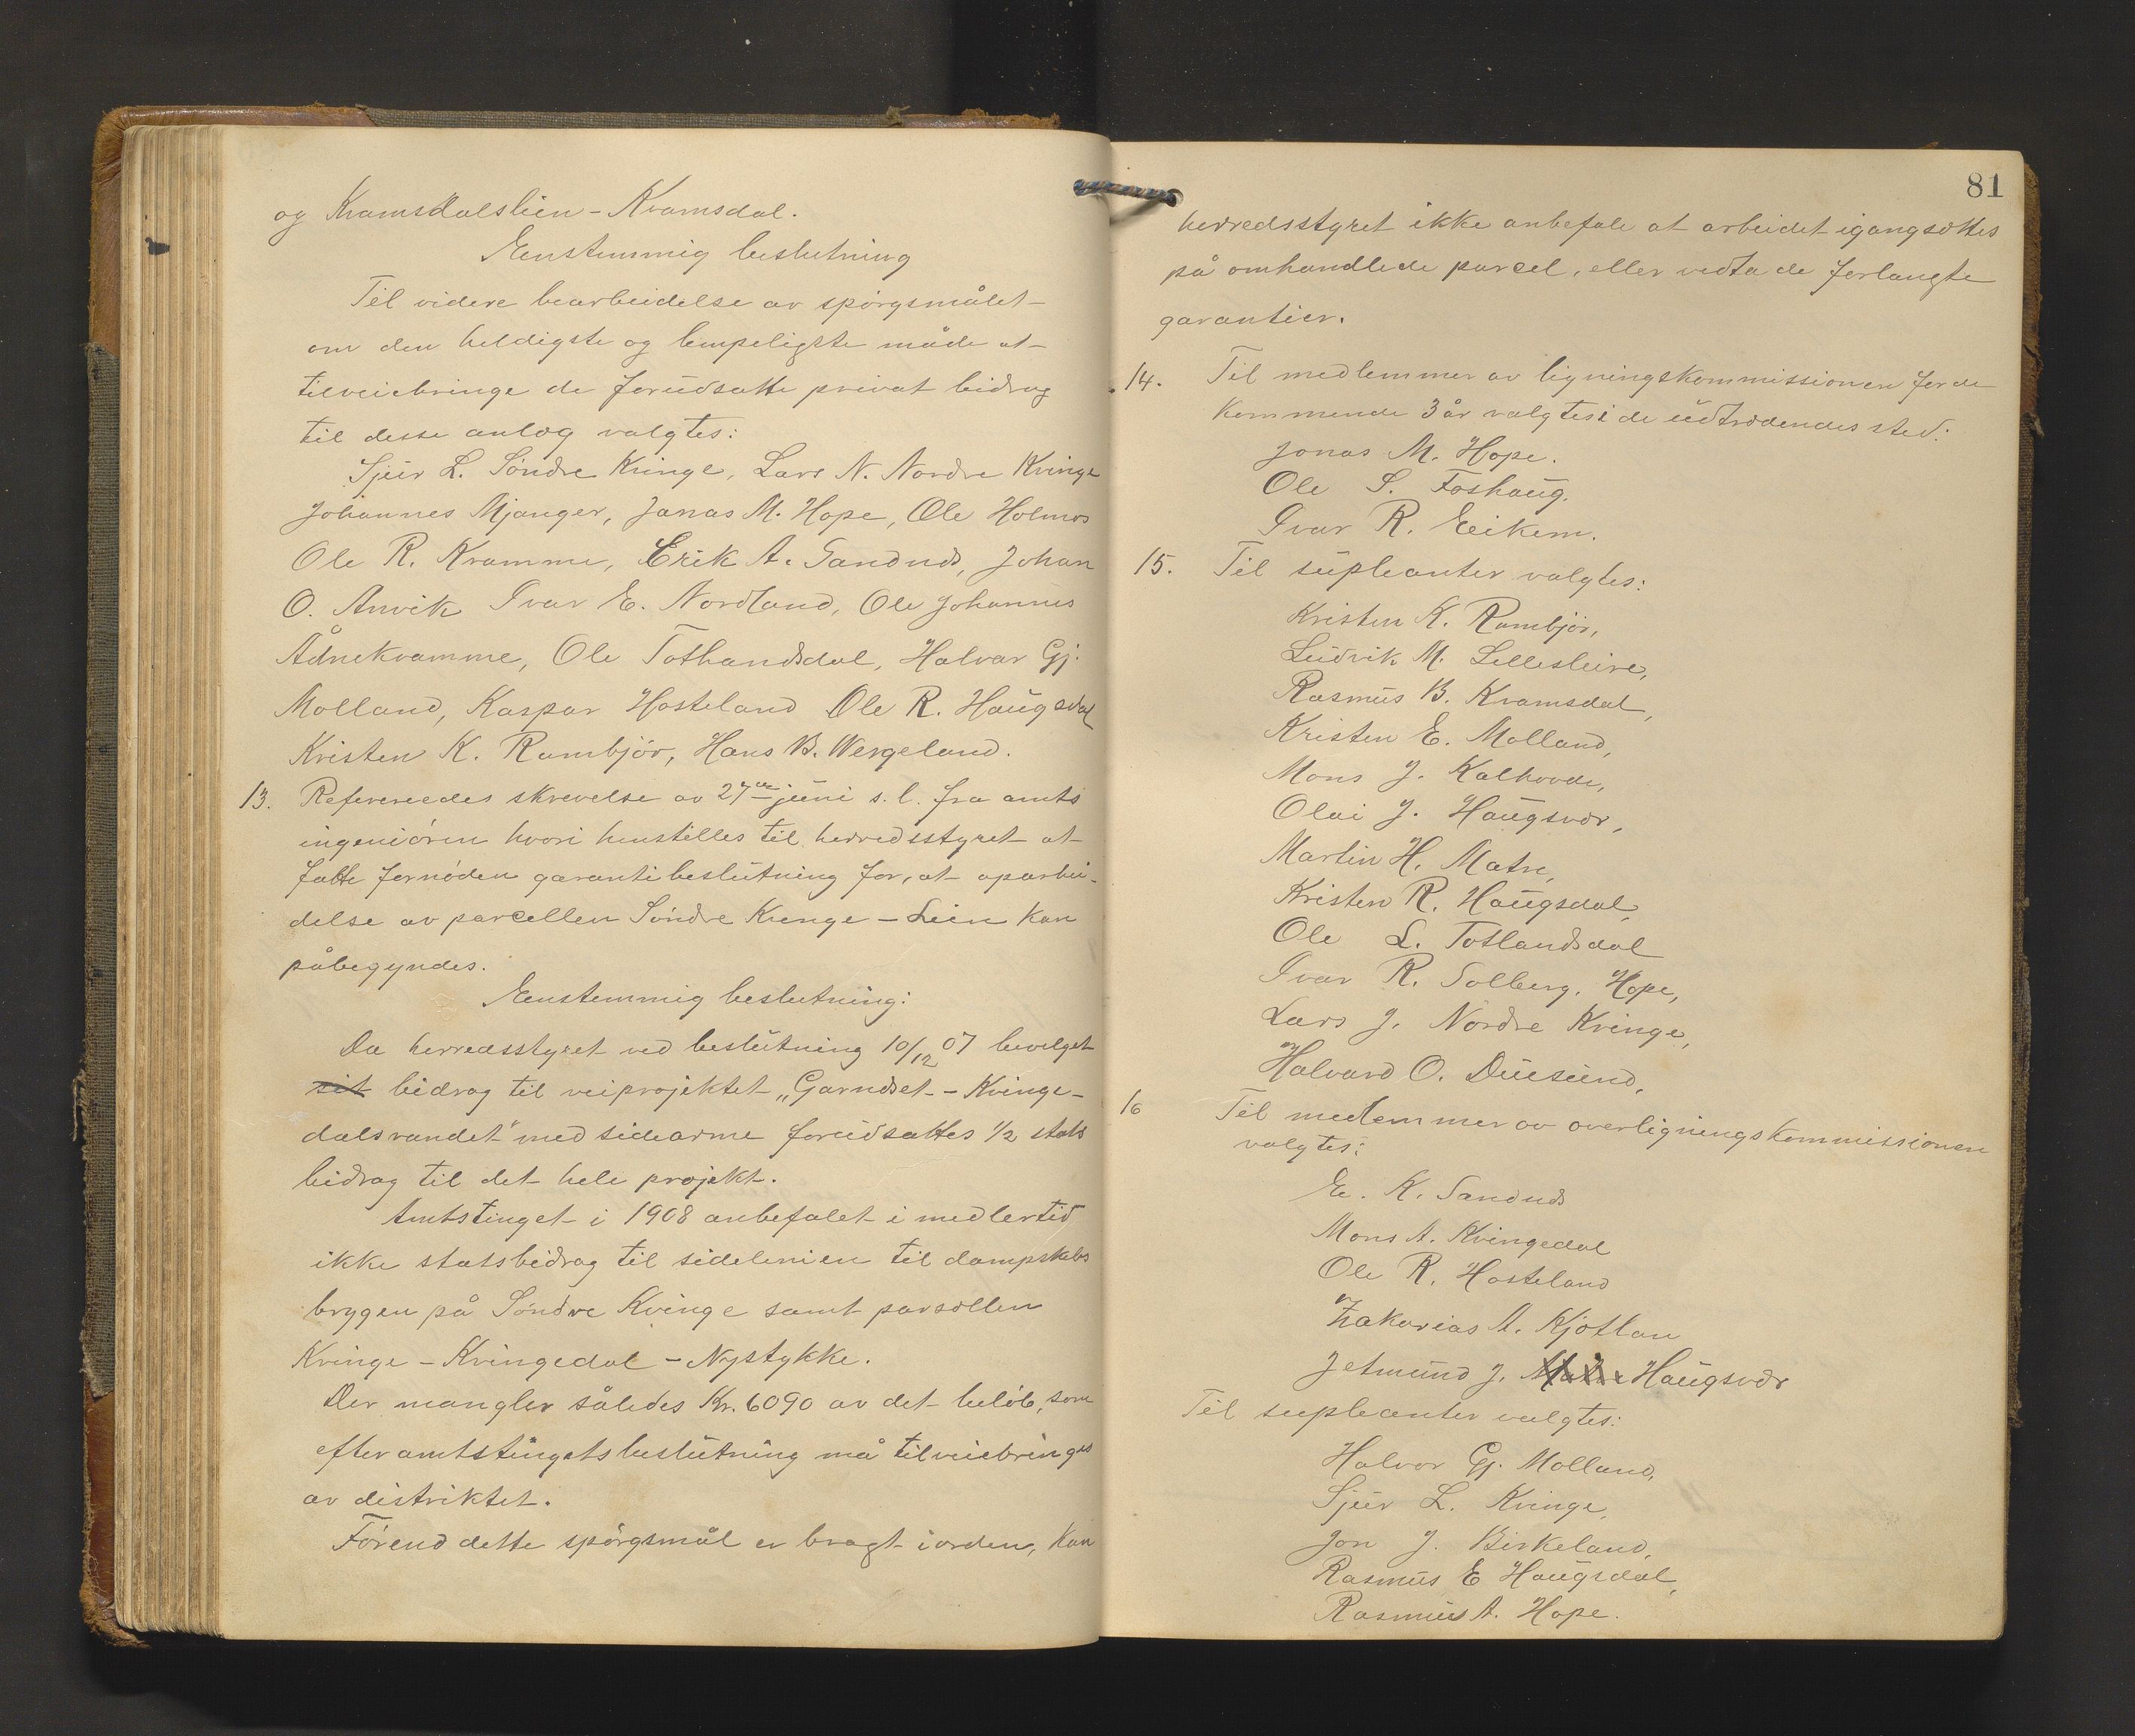 og Kramsdalslien - Kvamsdal.
Eenstemmig beslutning
Til videre bearbeidelse av spörgsmålet
om den heldigste og lempeligste måde at
tilveiebringe de forudsatte privat bidrag
til desse anlæg valgtes:
Sjur L. Söndre Kvinge, Lars N. Nordre Kvinge
Johannes Mjanger, Jonas M. Hope, Ole Holmås
Ole R. Kvamme, Erik A. Sandnds, Johan
O. Anvik Ivar E. Nordland, Ole Johannes
Ådnekvamme, Ole Totlandsdal, Halvar Gj.
Molland, Kaspar Hosteland Ole R. Haugsdal
Kristen K. Rambjör, Hans B. Wergeland.
13. Refereredes skrevelse av 27de juni s. l. fra amts
ingeniören hvori henstilles til herredsstyret at
fatte fornöden garantibeslutning for, at oparbei-
delse av parcellen Söndre Kvinge - Lein kan
påbegyndes.
Eenstemmig beslutning:
Da herredsstyret ved beslutning 10/12 07 bevilget
sit bidrag til veiprojektet „Garndset - Kvinge-
dalsvandet" med sidearme forudsattes 1/2 stats
bidrag til det hele projekt.
Amtstinget i 1908 anbefalet i medlertid
ikke statsbidrag til sidelenien til dampskebs
bryggen på Söndre Kvinge samt parsellen
Kvinge - Kvingedal - Nystykke.
Der mangler således Kr. 6090 av det belöb, som
efter amtstingets beslutning må tilveiebringes
av distriktet.
Förend dette spörgsmål er bragt i orden, kan
81
herredsstyret ikke anbefale at arbeidet igangsættes
på omhandlede parcel, eller vedta de forlangte
garantier.
14. Til medlemmer av ligningskommissionen for de
kommende 3 år valgtes i de udtrædendes sted:
Jonas M. Hope.
Ole S. Foshaug.
Ivar R. Eikem.
15. Til supleanter valgtes:
Kristen K. Rambjör,
Ludvik M. Lillesleire,
Rasmus B. Kvamsdal,
Kristen E. Molland,
Mons J. Kalhovde,
Olai J. Haugsvær,
Martin H. Matre,
Kristen R. Haugsdal,
Ole L. Totlandsdal
Ivar R. Solberg, Hope,
Lars J. Nordre Kvinge,
Halvard O. Duesund,
16 Til medlemmer av overligningskommissionen
valgtes:
E. K. Sandnds
Mons A. Kvingedal
Ole R. Hosteland
Zakarias A. Kjötlan
Jetmund J. Matre Haugsvær
Til supleanter valgtes:
Halvor Gj. Molland,
Sjur L. Kvinge,
Jon J. Birkeland,
Rasmus E Haugsdal,
Rasmus A. Hope.